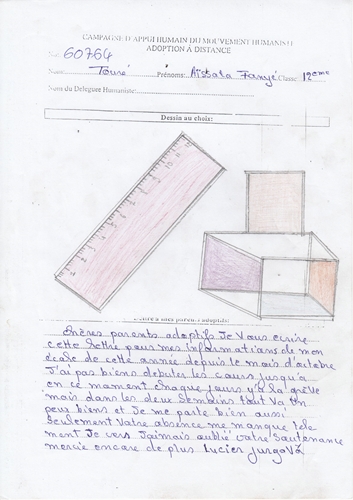 CAMPAGNE D'APPUI HUMAIN DU MOUVEMENT HUMANISTE
ADOPTION À DISTANCE
60764
Nom: Touré Prénoms: Aïssata Fanyé Classe: 12ème
Nom du Délégué Humaniste:
Dessin au choix:
Lettre à mes parents adoptifs:
Chères parents adoptifs Je Vous écrire
cette lettre pour mes informations de mon
école de cette année depuis le mois d'octobre
J'ai pas biens debuter les cours jusqu'à
en ce moment chaque jours y'a la grève
mais dans les deux Semaines tout va Un
peux biens et Je me porte bien aussi
Seulement Votre absence me manque telle
ment Je vers Jaimais oublié votre Soutenance
mercie encore de plus Lucien Jurgova